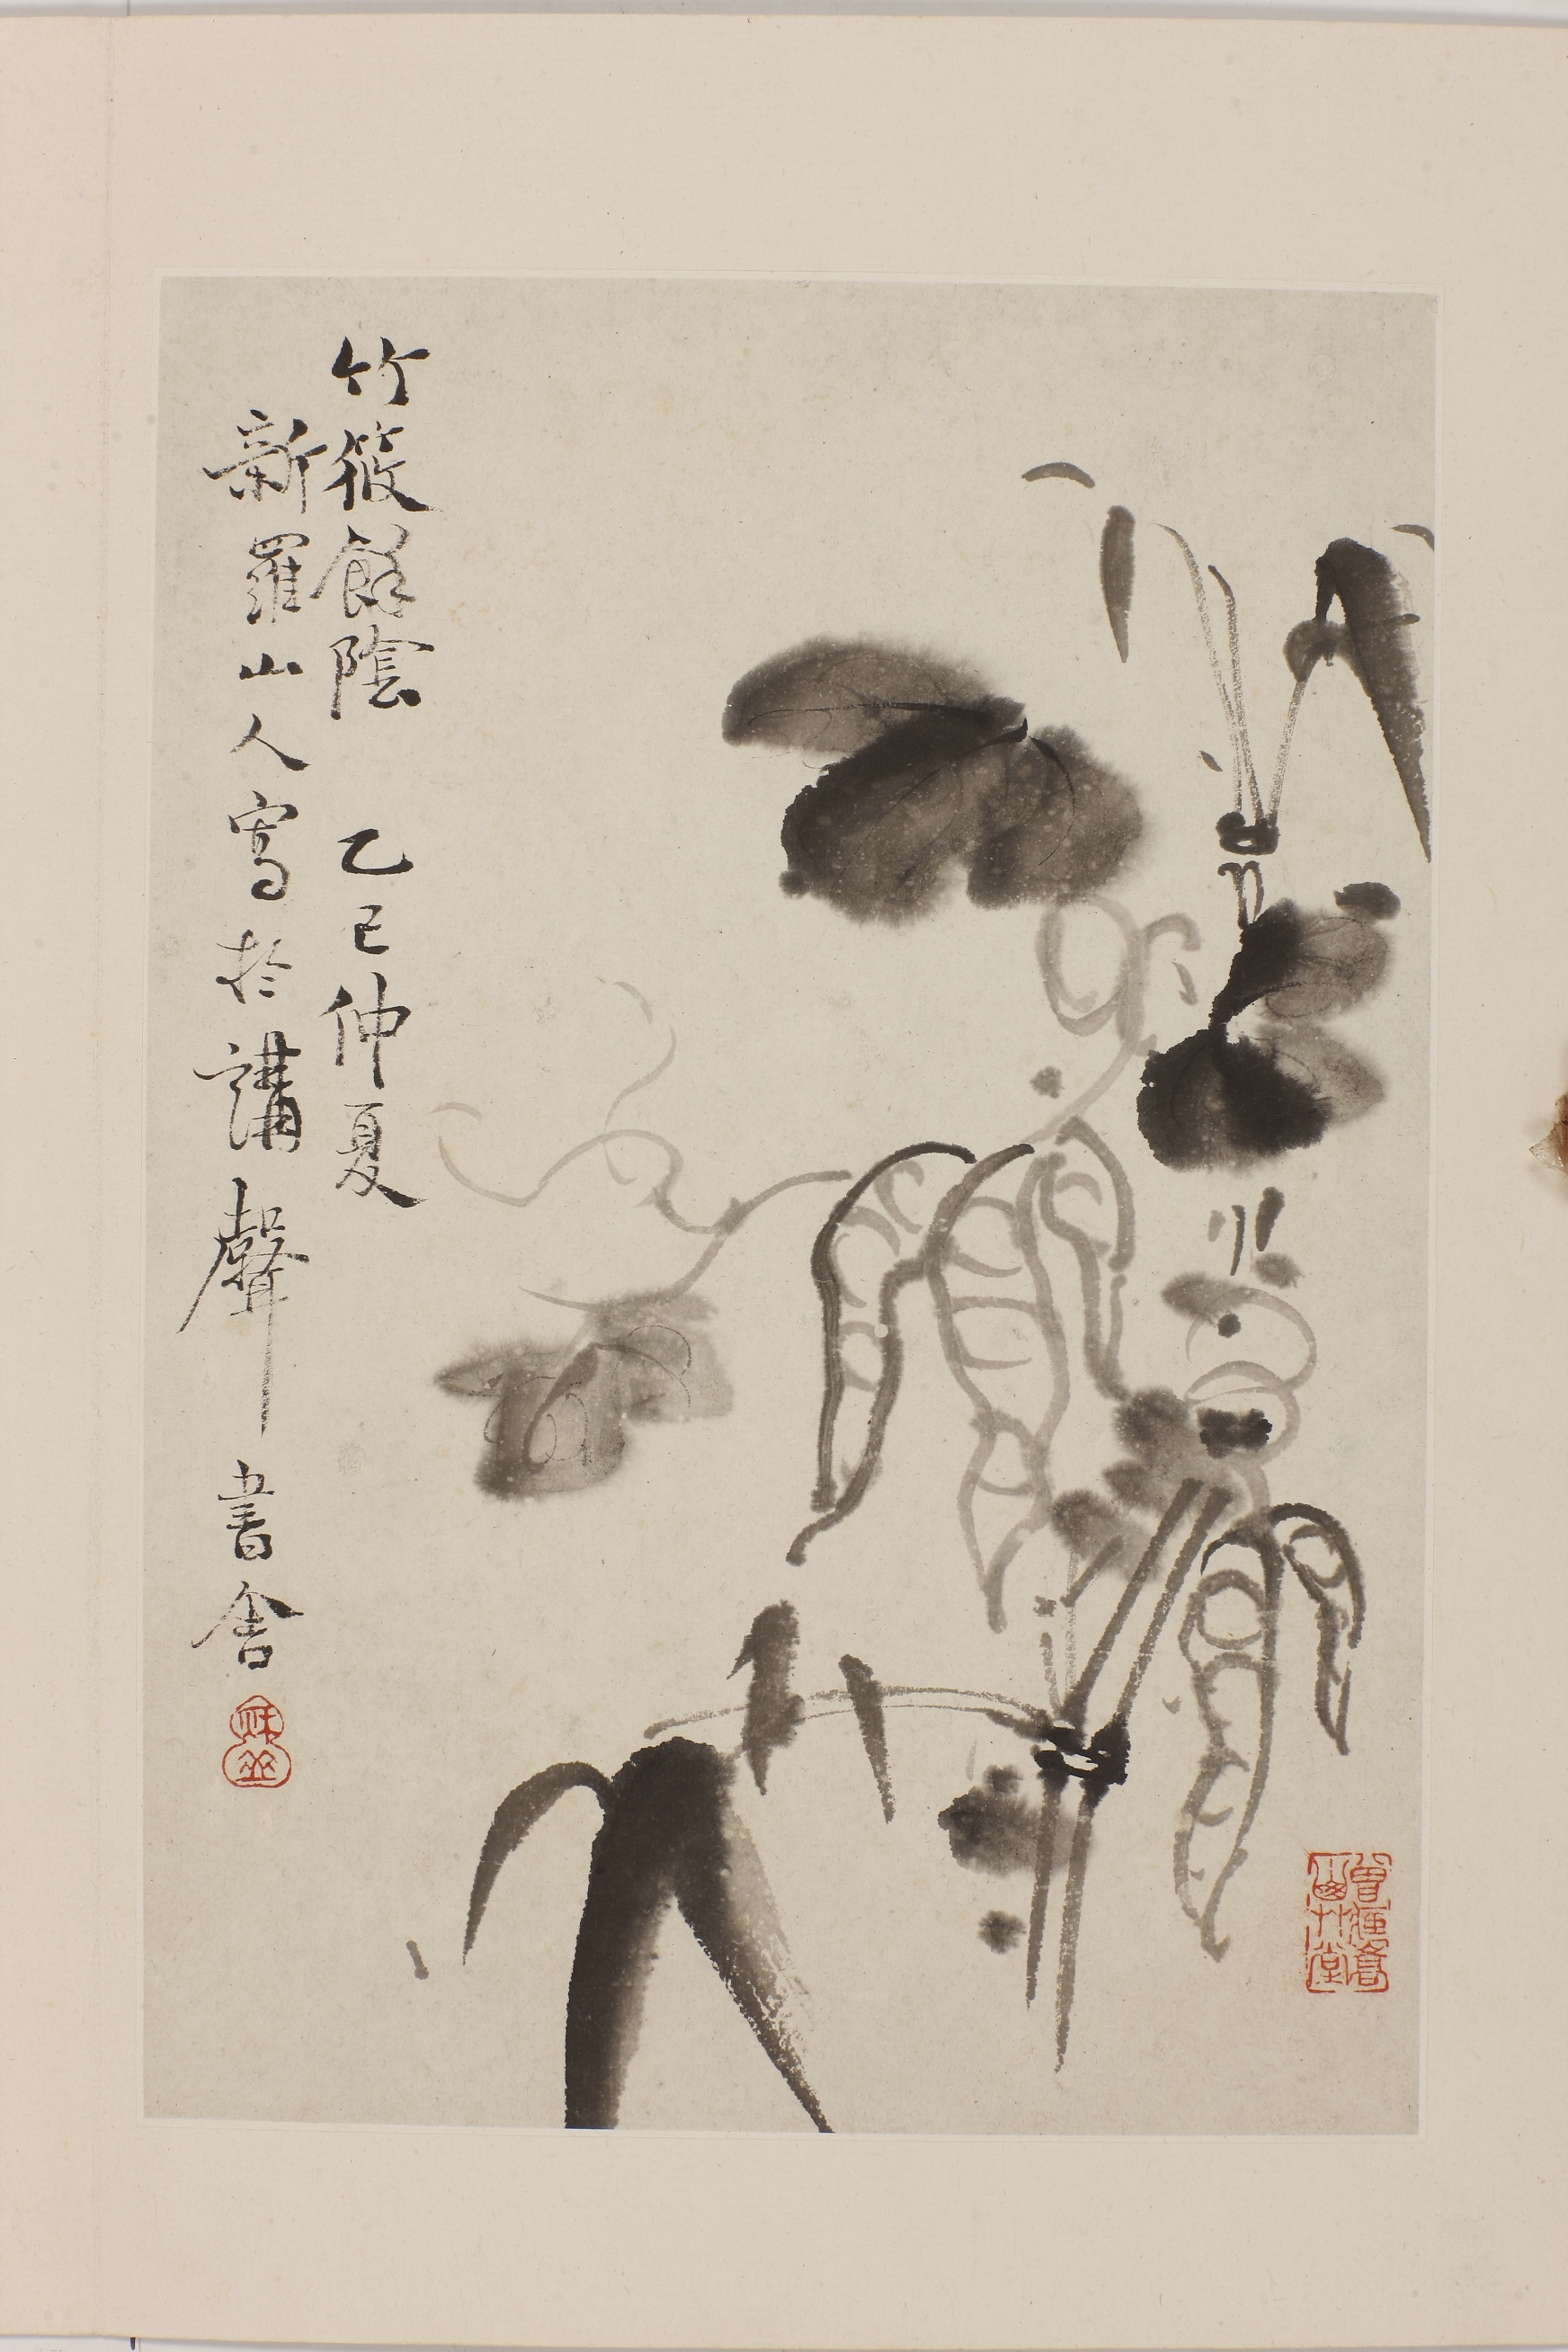 竹筱餘陰 乙巳仲夏
新羅山人寫於講聲書舍